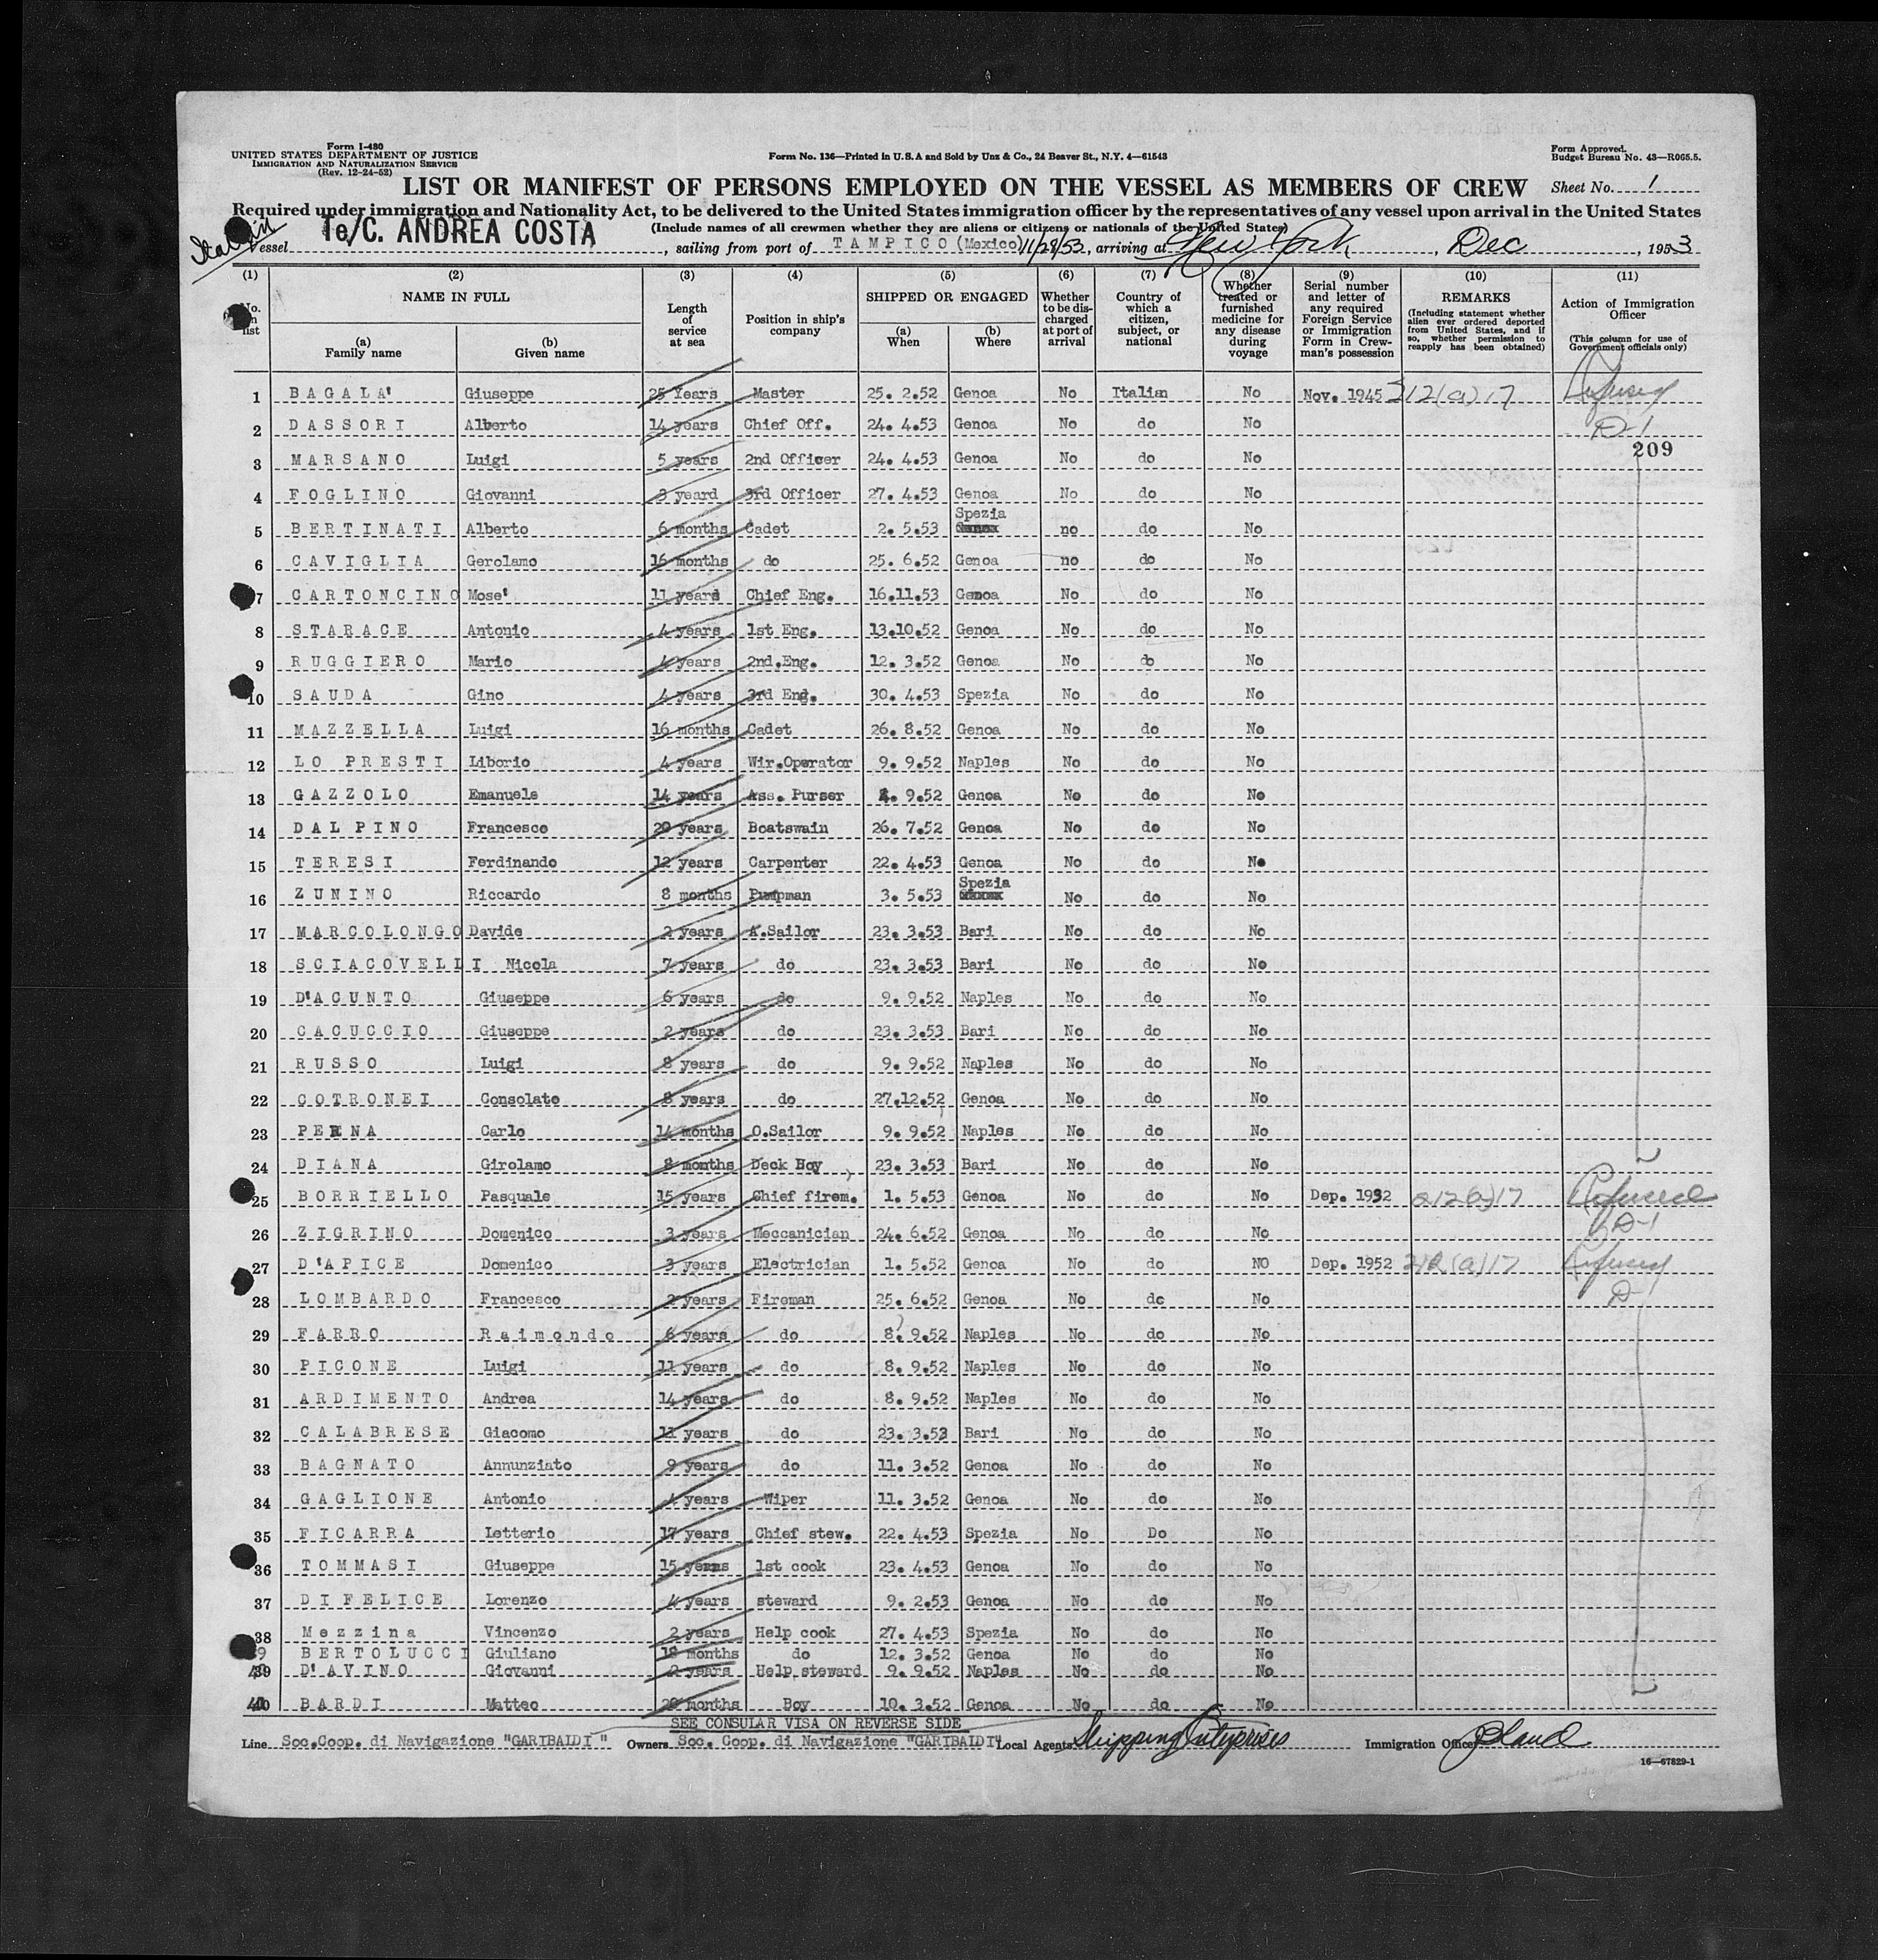 Form I-480
UNITED STATES DEPARTMENT OF JUSTICE
IMMIGRATION AND NATURALIZATION SERVICE
(Rev. 12-24-52)
Form No. 136—Printed in U.S.A and Sold by Unz & Co., 24 Beaver St., N.Y. 4—61543
Form Approved.
Budget Bureau No. 43—R065.5.
LIST OR MANIFEST OF PERSONS EMPLOYED ON THE VESSEL AS MEMBERS OF CREW
Sheet No. 1
Required under immigration and Nationality Act, to be delivered to the United States immigration officer by the representatives of any vessel upon arrival in the United States
(Include names of all crewmen whether they are aliens or citizens or nationals of the United States)
Italian
Vessel Te/C. ANDREA COSTA, sailing from port of TAMPICO (Mexico) 11/29/53, arriving at New York, Dec, 1953
(1) (2) (3) (4) (5) (6) (7) (8) (9) (10) (11)
No. on list
NAME IN FULL
(a) Family name
(b) Given name
Length of service at sea
Position in ship's company
SHIPPED OR ENGAGED
(a) When
(b) Where
Whether to be discharged at port of arrival
Country of which a citizen, subject, or national
Whether treated or furnished medicine for any disease during voyage
Serial number and letter of any required Foreign Service or Immigration Form in Crewman's possession
REMARKS
(Including statement whether alien ever ordered deported from United States, and if so, whether permission to reapply has been obtained)
Action of Immigration Officer
(This column for use of Government officials only)
1 BAGALA' Giuseppe 25 Years Master 25. 2.52 Genoa No Italian No Nov. 1945 212(a)17 Refused
2 DASSORI Alberto 14 years Chief Off. 24. 4.53 Genoa No do No D-1
209
3 MARSANO Luigi 5 years 2nd Officer 24. 4.53 Genoa No do No
4 FOGLINO Giovanni 3 yeard 3rd Officer 27. 4.53 Genoa No do No
5 BERTINATI Alberto 6 months Cadet 2. 5.53 Spezia no do No
6 CAVIGLIA Gerolamo 16 months do 25. 6.52 Genoa no do No
7 CARTONCINO Mose' 11 years Chief Eng. 16.11.53 Genoa No do No
8 STARACE Antonio 4 years 1st Eng. 13.10.52 Genoa No do No
9 RUGGIERO Mario 4 years 2nd.Eng. 12. 3.52 Genoa No do No
10 SAUDA Gino 4 years 3rd Eng. 30. 4.53 Spezia No do No
11 MAZZELLA Luigi 16 months Cadet 26. 8.52 Genoa No do No
12 LO PRESTI Liborio 4 years Wir.Operator 9. 9.52 Naples No do No
13 GAZZOLO Emanuele 14 years Ass. Purser 9.52 Genoa No do No
14 DAL PINO Francesco 20 years Boatswain 26. 7.52 Genoa No do No
15 TERESI Ferdinando 12 years Carpenter 22. 4.53 Genoa No do No
16 ZUNINO Riccardo 8 months Pumpman 3. 5.53 Spezia No do No
17 MARCOLONGO Davide 2 years A.Sailor 23. 3.53 Bari No do No
18 SCIACOVELLI Nicola 7 years do 23. 3.53 Bari No do No
19 D'ACUNTO Giuseppe 6 years do 9. 9.52 Naples No do No
20 CACUCCIO Giuseppe 2 years do 23. 3.53 Bari No do No
21 RUSSO Luigi 8 years do 9. 9.52 Naples No do No
22 COTRONEI Consolato 8 years do 27.12.52 Genoa No do No
23 PERNA Carlo 14 months O.Sailor 9. 9.52 Naples No do No
24 DIANA Girolamo 8 months Deck Boy 23. 3.53 Bari No do No
25 BORRIELLO Pasquale 15 years Chief firem. 1. 5.53 Genoa No do No Dep. 1932 212(a)17 Refused
26 ZIGRINO Domenico 3 years Meccanician 24. 6.52 Genoa No do No D-1
27 D'APICE Domenico 3 years Electrician 1. 5.52 Genoa No do NO Dep. 1952 212(a)17 Refused
28 LOMBARDO Francesco 2 years Fireman 25. 6.52 Genoa No do No D-
29 FARRO Raimondo 6 years do 8. 9.52 Naples No do No
30 PICONE Luigi 11 years do 8. 9.52 Naples No do No
31 ARDIMENTO Andrea 14 years do 8. 9.52 Naples No do No
32 CALABRESE Giacomo 11 years do 23. 3.53 Bari No do No
33 BAGNATO Annunziato 9 years do 11. 3.52 Genoa No do No
34 GAGLIONE Antonio 4 years Wiper 11. 3.52 Genoa No do No
35 FICARRA Letterio 17 years Chief stew. 22. 4.53 Spezia No Do No
36 TOMMASI Giuseppe 15 years 1st cook 23. 4.53 Genoa No do No
37 DI FELICE Lorenzo 4 years steward 9. 2.53 Genoa No do No
38 Mezzina Vincenzo 2 years Help cook 27. 4.53 Spezia No do No
39 BERTOLUCCI Giuliano 18 months do 12. 3.52 Genoa No do No
D'AVINO Giovanni 2 years Help steward 9. 9.52 Naples No do No
BARDI Matteo 20 months Boy 10. 3.52 Genoa No do No
SEE CONSULAR VISA ON REVERSE SIDE
Line Soc.Coop. di Navigazione "GARIBALDI" Owners Soc. Coop. di Navigazione "GARIBALDI" Local Agents Shipping Enterprises Immigration Officer
16—67829-1